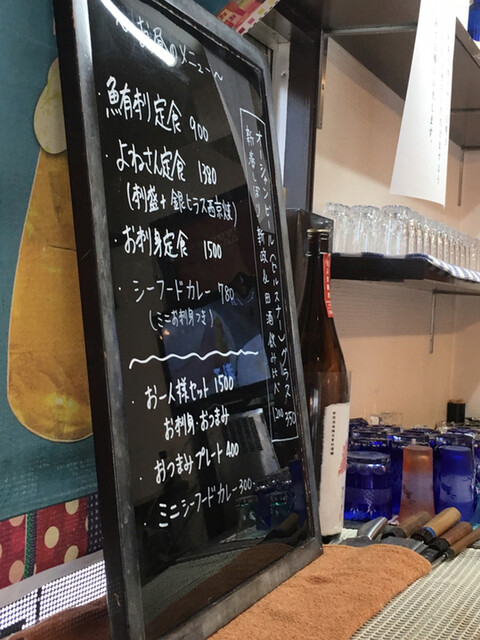 お昼のメニュー〜
・鮪刺定食 900
・よねさん定食 1380
(刺盛+銀ヒラス西京焼)
・お刺身定食 1500
・シーフードカレー 780
(ミニお刺身つき)
・お一人様セット 1500
お刺身・おつまみ
おつまみプレート 400
・ミニシーフードカレー 300-
新政&田酒飲み比べ 1200